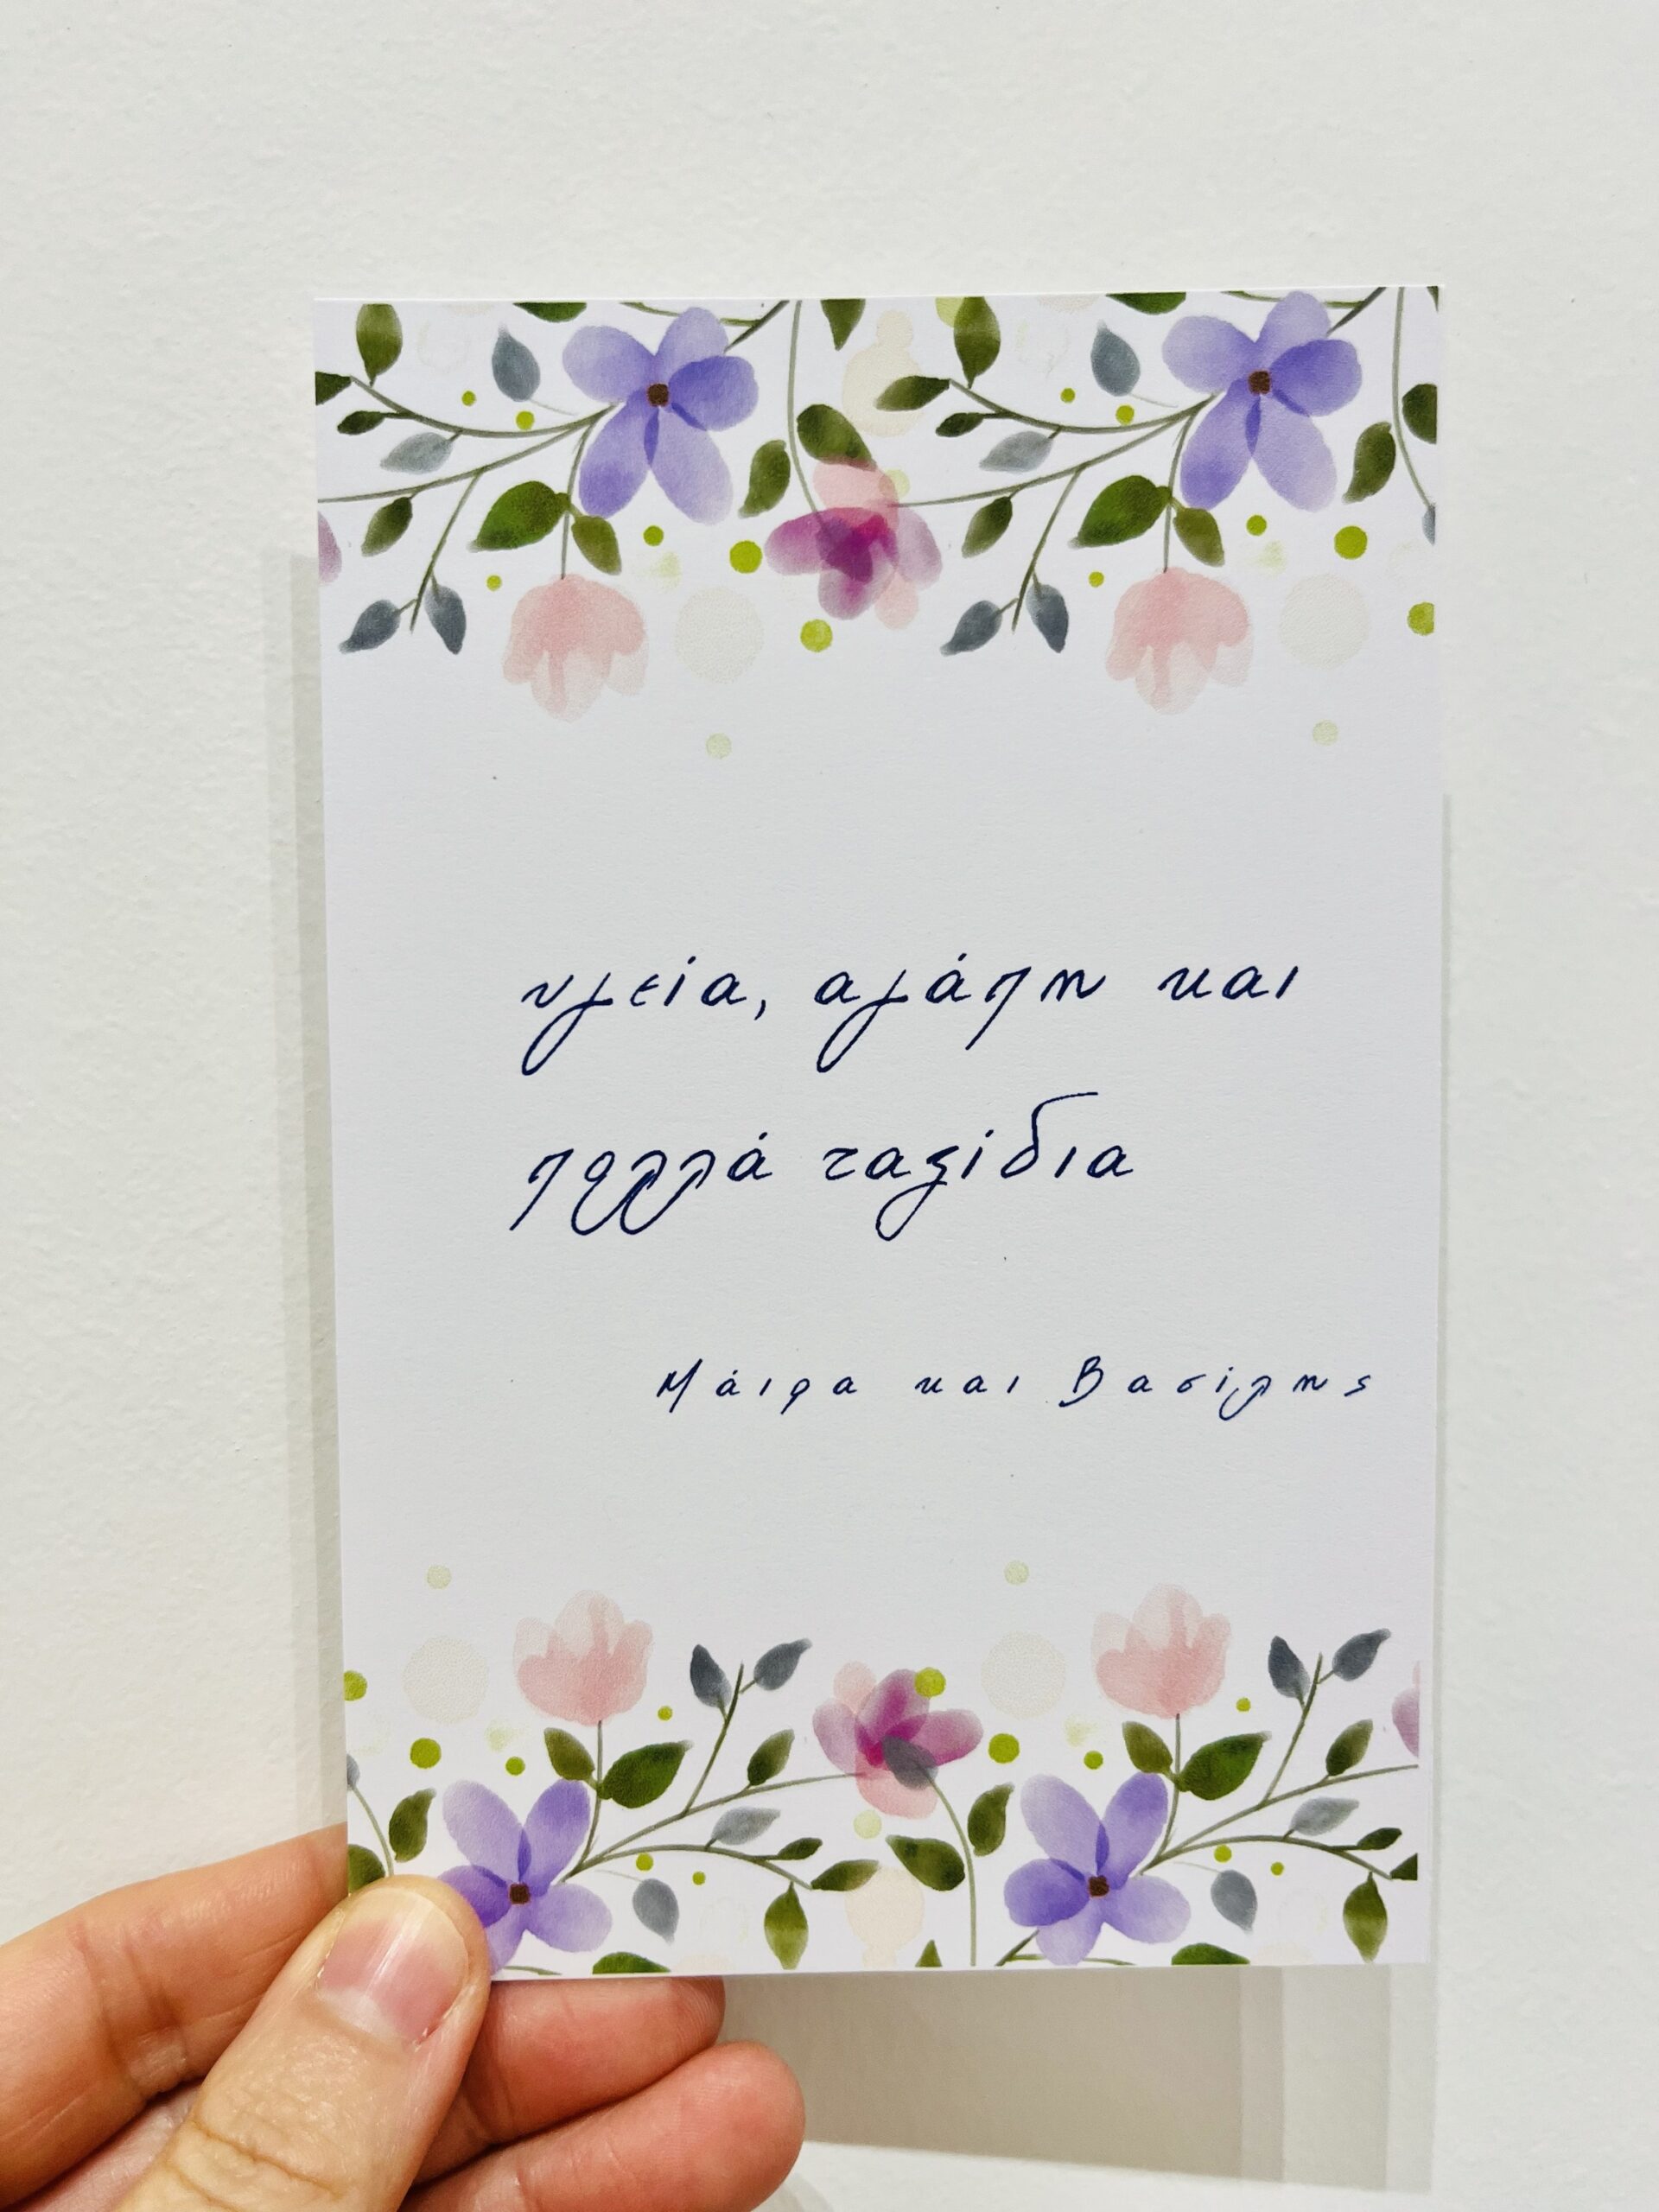 υγεία, αγάπη και
πολλά ταξίδια
Μάιρα και Βασίλης